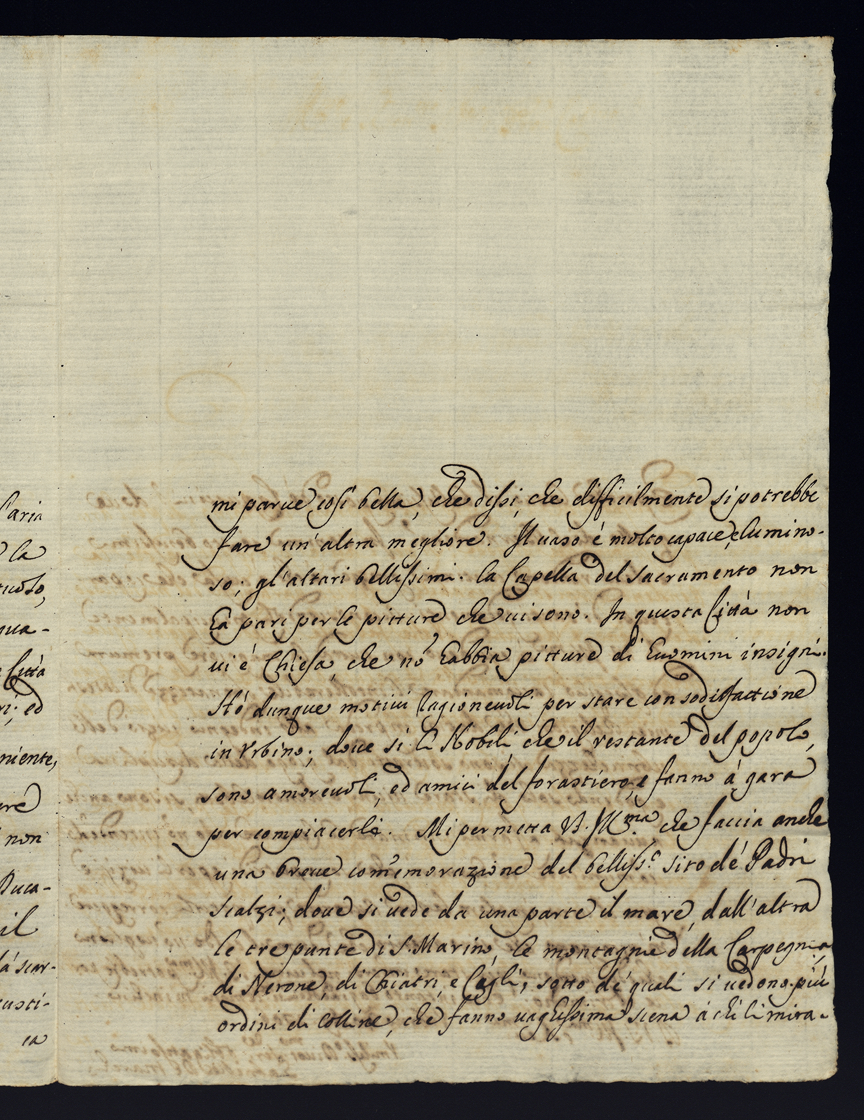 mi parue così bella, che dissi, che difficilmente si potrebbe
fare un'altra megliore. Il uaso é molto capace, e lumino-
so; gl'altari bellissimi. la Capella del sacramento non
hà pari per le pitture che ui sono. In questa Città non
ui é Chiesa, che nõ habbia pitture di huomini insigni.
Hó dunque motiui ragioneuoli per stare con sodisfattione
in Vrbino; doue si li Nobili, che il restante del popolo,
sono amoreuoli, ed amici del forastiero, e fanno á gara
per compiacerli. Mi permetta V. Ill.ma che faccia anche
una breue com̃emorazione del belliss.o sito dé Padri
scalzi; doue si uede da una parte il mare, dall'altra
le tre punte di S. Marino, le montagne della Carpegna,
di Nerone, di Chiatri, e Cagli; sotto dé quali si uedono più
ordini di colline, che fanno uaghissima scena á chi li mira.
l'aria
la
-
Città
ed
niente,
non
Duca-
il
scar-
ca